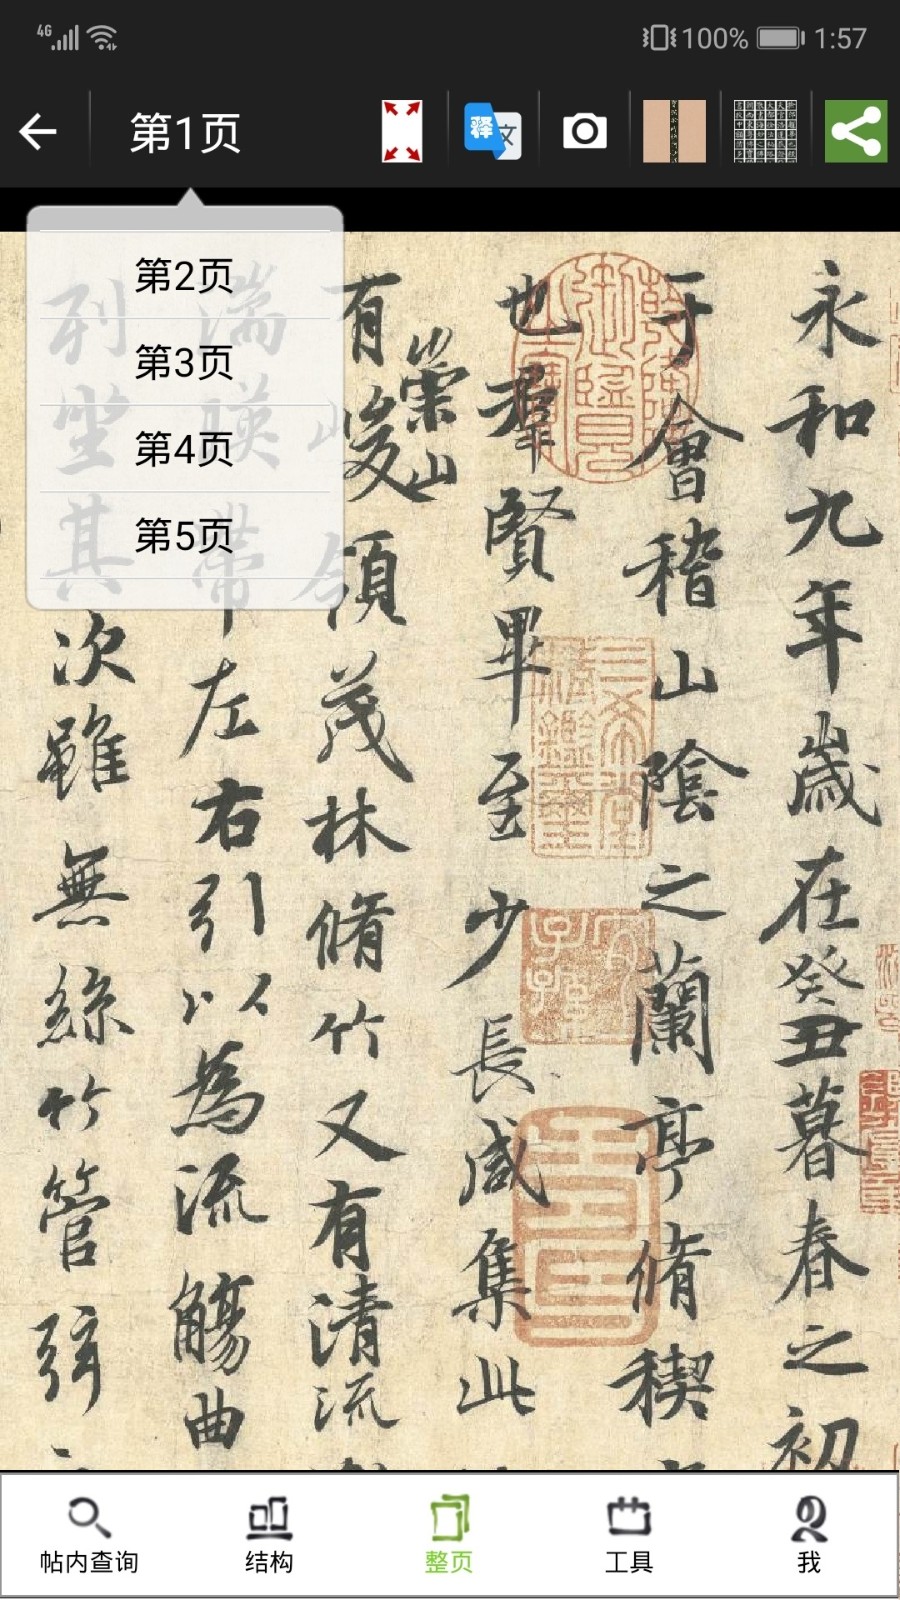 4G 100% 1:57
第1页
释文
第2页
第3页
第4页
第5页
永和九年歲在癸丑暮春之初
于會稽山陰之蘭亭脩稧
也羣賢畢至少長咸集此
有崇山峻領茂林脩竹又有清流
湍暎帶左右引以為流觴曲
列坐其次雖無絲竹管弦
乾隆御覽之寶
三希堂精鑑璽
宜子孫
帖内查询
结构
整页
工具
我